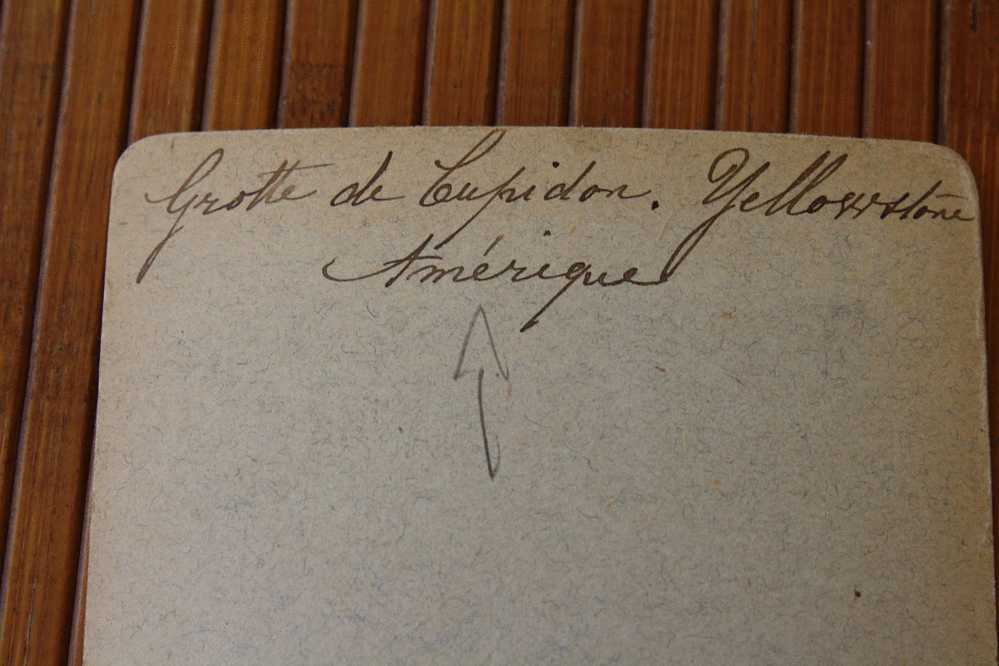 Grotte de Cupidon. Yellowstone
Amérique